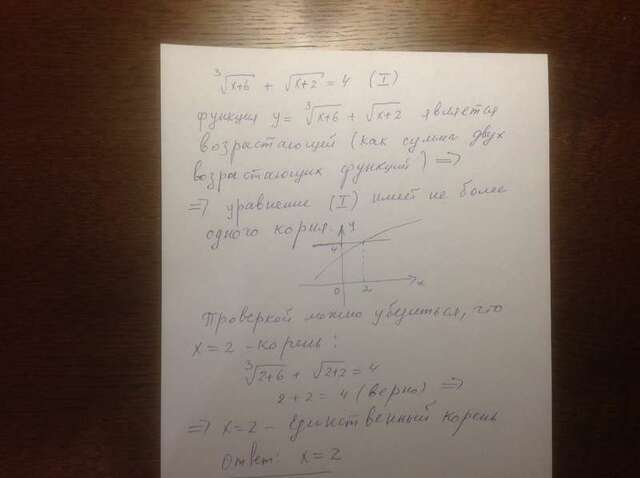 ∛(x+6) + √(x+2) = 4 (I)
функция y = ∛(x+6) + √(x+2) является
возрастающей (как сумма двух
возрастающих функций) =>
=> уравнение (I) имеет не более
одного корня.
y
4
0 2 x
Проверкой можно убедиться, что
x = 2 - корень:
∛(2+6) + √(2+2) = 4
2 + 2 = 4 (верно) =>
=> x = 2 - единственный корень
Ответ: x = 2